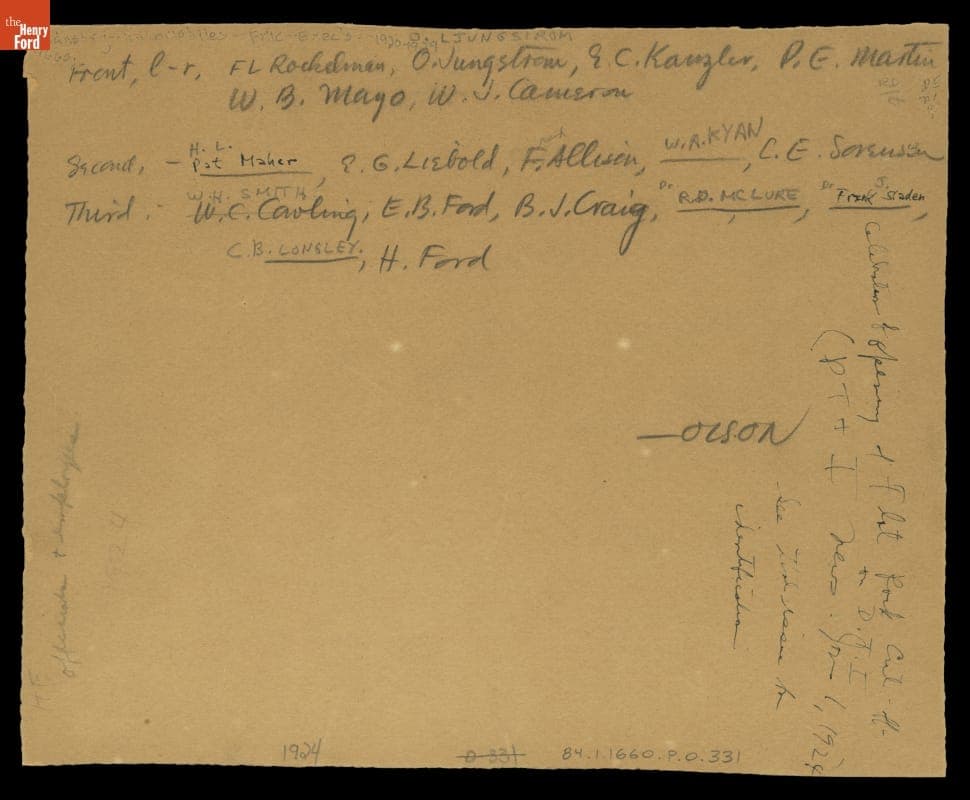 the
Henry
Ford
O. LJUNGSTROM
Front, l-r, FL Rockelman, O. Jungstrom, E. C. Kanzler, P. E. Martin
W. B. Mayo, W. J. Cameron
H. L.
W. A. RYAN
Second, - Pat Maher, E. G. Liebold, F. Allison, , C. E. Sorensen
W. H. SMITH
Third - W. C. Cowling, E. B. Ford, B. J. Craig, Dr. R.D. MCLURE, Dr. Frank J. Sladen,
C. B. LONGLEY, H. Ford
Celebration of opening of Flat Rock Cut-
on D. T. I
(D T + I news. Jan 1, 192
—OLSON
- See
identification
officials + employees
1924
1924
O 331
84.1.1660.P.O.331